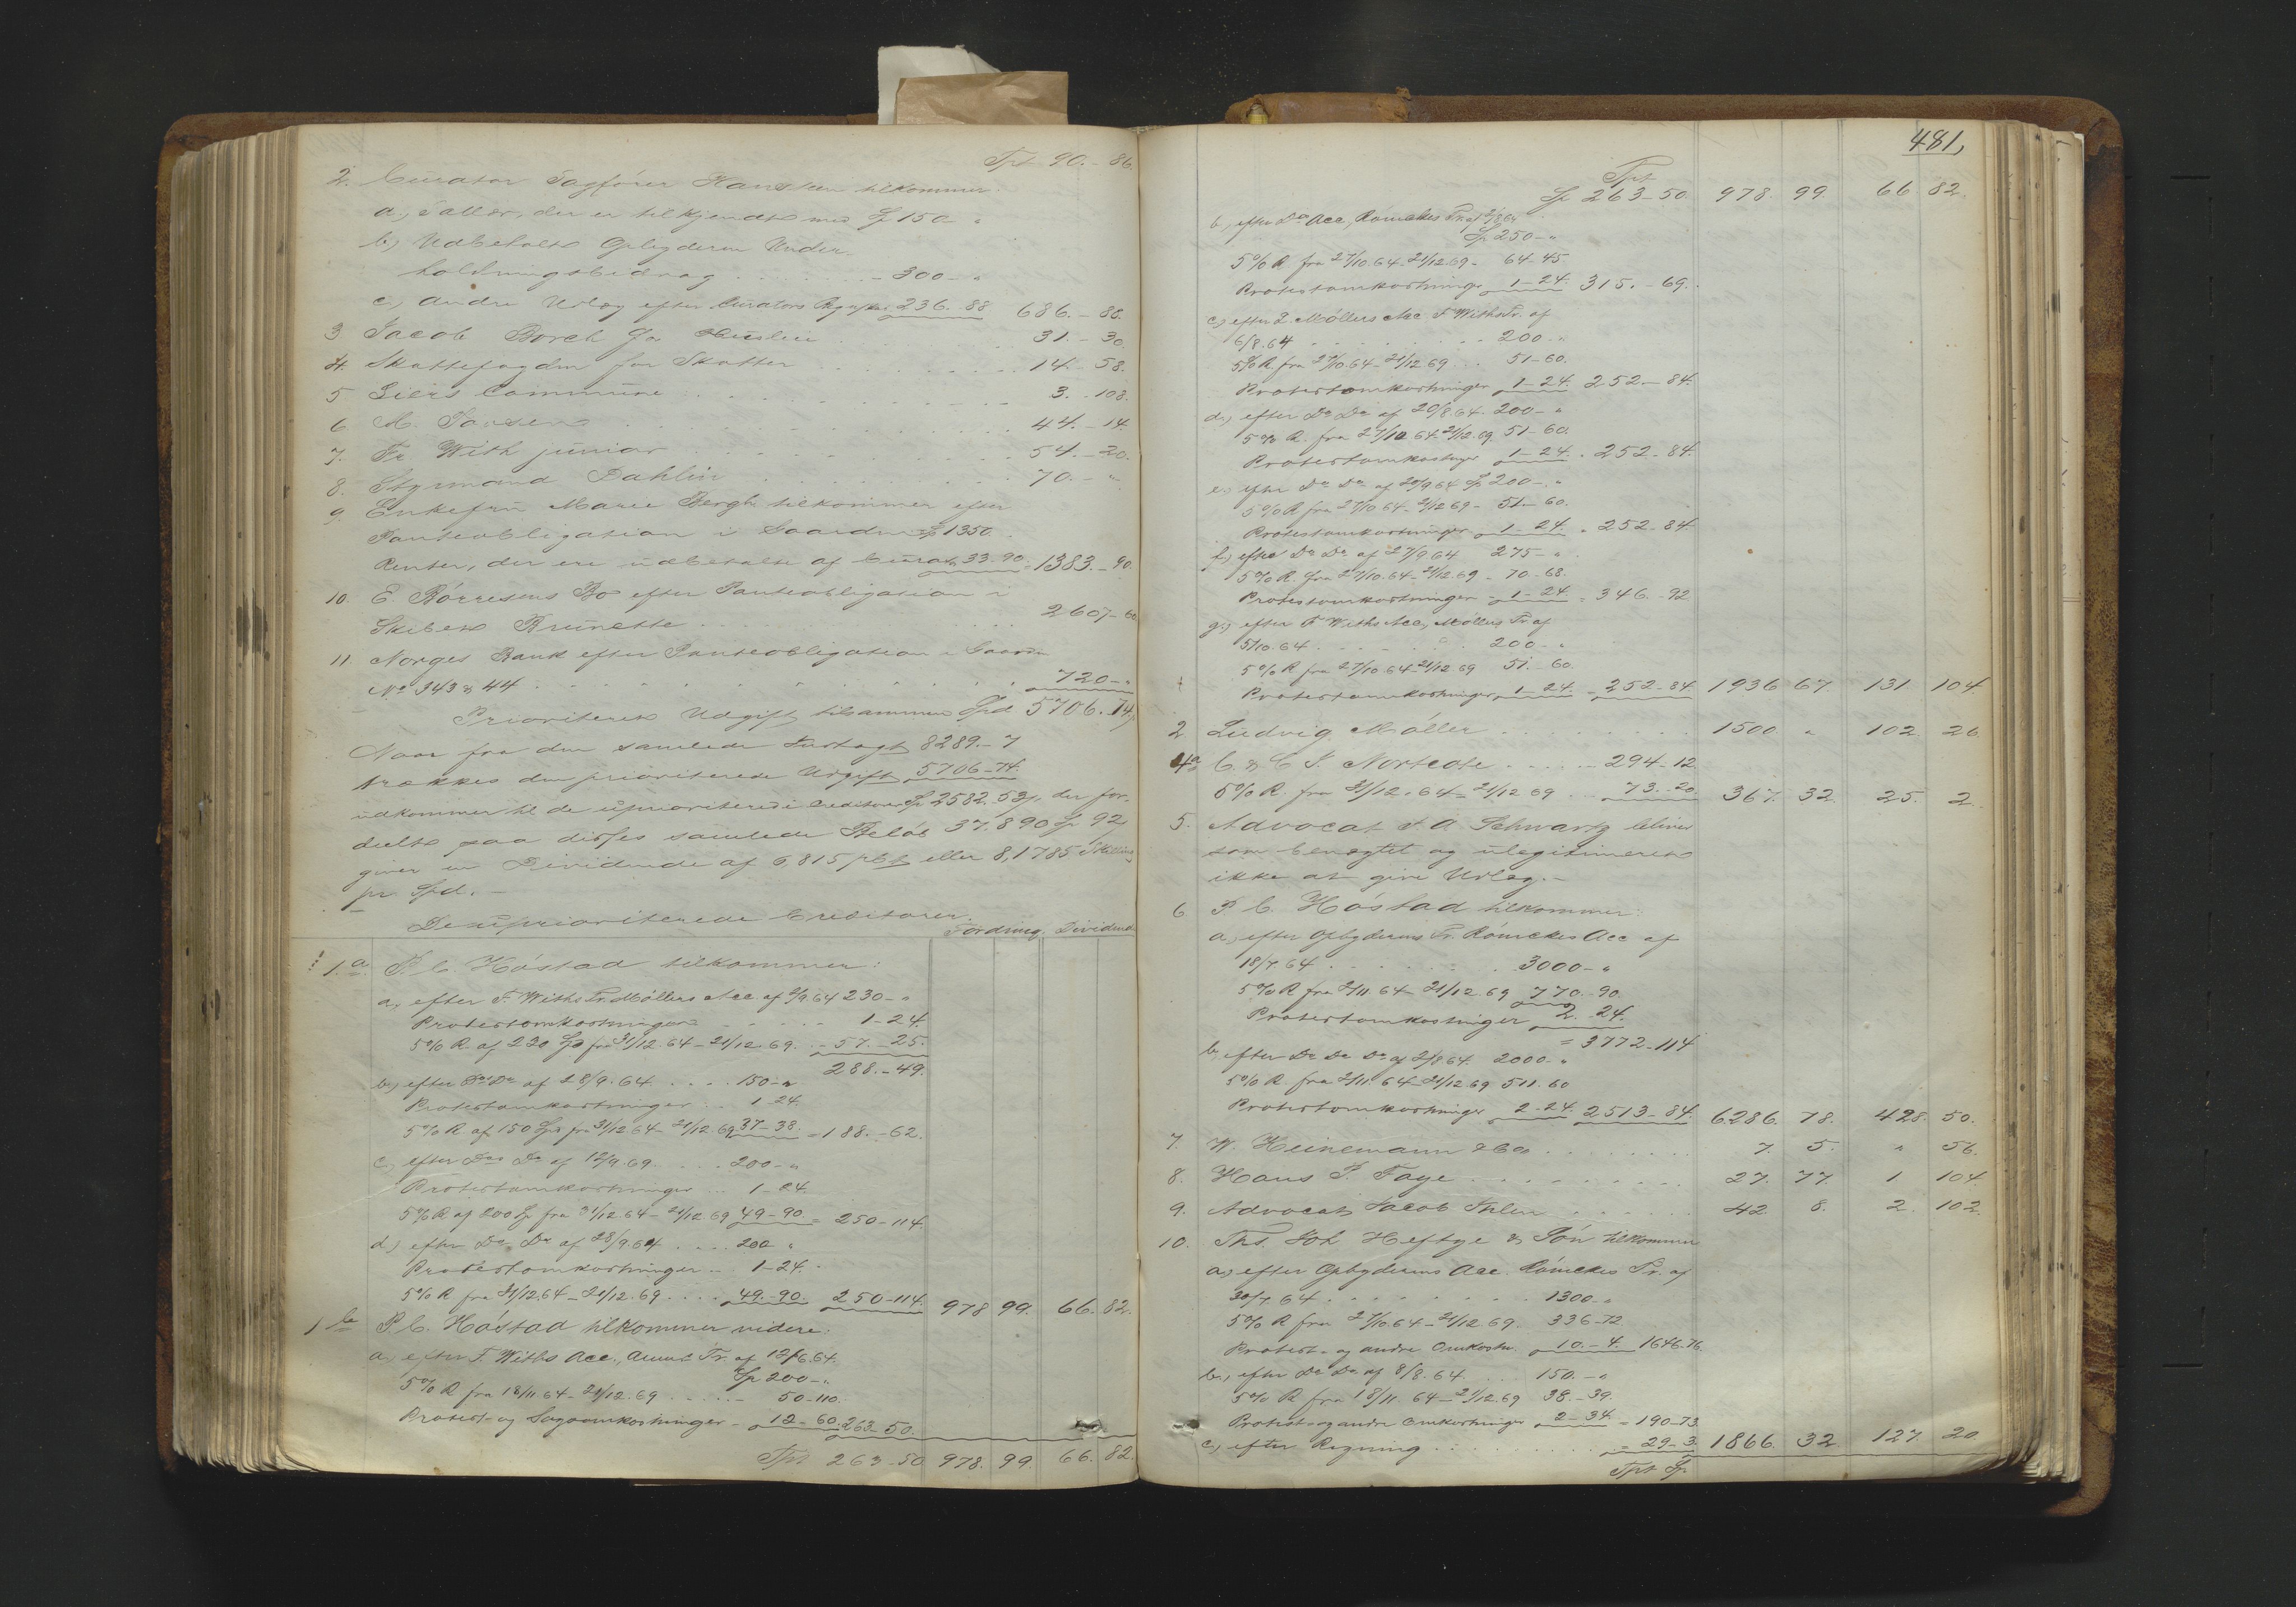 Tpt 90.-86
2. Curator Sagfører Hansteen tilkommer:
a., Sallær, der er tilkjendt med Sp 150 "
b., Udbetalt Opbyderen Under-
holdningsbidrag . . . . . - 300 - "
c., andre Udlæg efter Curators Regnskab 236. 88 686. - 88.
3 Jacob Borch for Huusleie 31. - 30.
4. Skattefogden for Skatter . . . 14. - 58.
5 Liers Commune . . . 3. - 108.
6. M. Pausen . . . 44. - 14.
7. Fr. With junior . . . 54. - 20.
8. Styrmand Dahlin . . . 70. - "
9. Enkefru Maren Bergh tilkommer efter
Panteobligation i Gaarden Sp 1350.
Renter, der ere udbetalte af Curator 33-90. = 1383. - 90.
10. E. Børresens Bo efter Panteobligation i
Skibet Brunette . . . 2607 - 60
11. Norges Bank efter Panteobligation i Gaarden
No 343 & 44 . . . 720 - "
Prioriteret Udgift tilsammen Spd 5706. 74
Naar fra den samlede Indtægt 8289. - 7
trækkes den prioriterede Udgift 5706 - 74.
udkommer til de uprioriterede Creditorer Sp 2582. 53, der for-
deelt paa disses samlede Beløb 37.890 Sp 92
giver en Dividende af 6,815 pCt eller 8,1785 Skilling
pr. Spd. -
De uprioriterede Creditorer.
Fordring. Dividende
1.a P. C. Høstad tilkommer:
a., efter F. Withs Tr. Møllers Acc. af 2/9.64 230 - "
Protestomkostninger . . . 1 - 24.
5% R. af 230 Sp fra 31/12.64 - 21/12.69. - 57. - 25.
288. - 49.
b., efter Do Do af 28/9.64. . . . 150 - "
Protestomkostninger . . 1 - 24.
5% R af 150 Sp fra 31/12.64 - 21/12.69 37 - 38. = 188. - 62.
c., efter Do Do af 12/9.69. . . . 200 - "
Protestomkostninger . . 1 - 24.
5% R af 200 Sp fra 31/12.64 - 21/12.69 49 - 90 = 250 - 114.
d., efter Do Do af 28/9.64 . . . 200 "
Protestomkostninger . . 1 - 24. -
5% R fra 31/12.64 - 21/12.69 . . . 49. - 90. 250 - 114. 978 99. 66. 82.
1 b P. C. Høstad tilkommer videre:
a., efter F. Withs Acc., Tr. af 12/6.64.
Sp 200 - "
5% R fra 18/11.64 - 21/12.69 . . . . 50 - 110.
Protest- og Sagsomkostninger - 12 - 60. 263 - 50.
Tpt 263 - 50 978. 99. 66. 82.
481,
Tpt
Sp 263 - 50. 978. 99. 66. 82.
b., efter Do Acc, Rømckes Tr. af 12/8.64
Sp 250 - "
5% R. fra 27/10.64 - 21/12.69 - 64 - 45.
Protestomkostninger 1 - 24. 315. - 69.
c., efter L. Møllers Acc. F. Withs Tr. af
6/8.64 . . . 200 - "
5% R. fra 27/10.64 - 21/12.69 . . . 51 - 60.
Protestomkostninger 1 - 24. 252. - 84.
d., efter Do Do af 20/8.64. 200 - "
5% R. fra 27/10.64. 21/12.69. 51 - 60.
Protestomkostninger 1 - 24. . 252. - 84.
e., efter Do Do af 20/9.64 Sp 200 - "
5% R fra 27/10.64 - 21/12.69 - 51 - 60.
Protestomkostninger - 1 - 24. . 252 - 84.
f., efter Do Do af 27/9.64 275 - "
5% R. fra 27/10.64 - 21/12.69 - 70 - 68.
Protestomkostninger - 1 - 24. = 346. - 92
g., efter F. Withs Acc., Møllers Tr. af
5/10.64 . . . 200 - "
5% R fra 27/10.64 21/12.69 51 - 60.
Protestomkostninger 1 - 24. - 252 - 84. 1936 67. 131. 104
2 Ludvig Møller . . . 1500 " 102. 26.
4a C. & C. J. Northcote . . . - 294 - 12.
5% R. fra 31/12.64 - 21/12.69 . . . 73. - 20. 367. 32. 25. 2.
5. Advocat F. A. Schwartz bliver
som benægtet og ulegitimeret
ikke at give Udlæg. -
6. P. C. Høstad tilkommer:
a., efter Opbyderens Tr. Rømckes Acc af
18/7.64 . . . 3000 - "
5% R fra 2/11.64 - 21/12.69 770. - 90.
Protestomkostninger 2. - 24.
= 3772 - 114
b., efter Do Do Do af 2/8.64. 2000 - "
5% R. fra 2/11.64 - 21/12.69 511. 60
Protestomkostninger 2 - 24. 2513 - 84. 6286. 78. 428. 50.
7. W. Heinemann & Co . . . 7. 5. " 56.
8. Hans P. Faye . . . 27. 77. 1 104.
9. Advocat Jacob Ihlen . . . 42. 8. 2. 102.
10. Ths. Joh. Heftye & Søn tilkommer
a., efter Opbyderens Acc. Rømckes Tr. af
30/7.64 . . . 1300 - "
5% R fra 27/10.64 - 21/12.69. 336 - 72.
Protest- og andre Omkostn. 10. - 4. 1646 - 76.
b., efter Do Do af 8/8.64. . . . 150. - "
5% R fra 18/11.64 - 21/12.69 38. - 39.
Protest- og andre Omkostninger 2 - 34. = 190 - 73.
c., efter Regning . . . = 29 - 3. 1866. 32. 127. 20
Tpt Sp